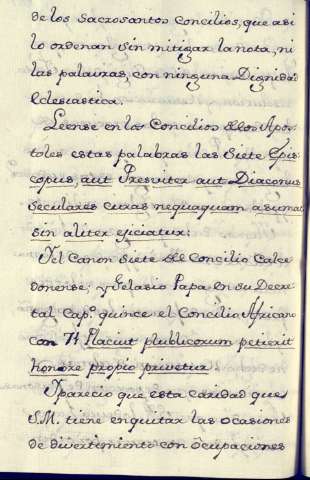 de los Sacrosantos Concilios, que asi
lo ordenan sin mitigar la nota, ni
las palauras, con ninguna Dignidad
Eclesiastica.
Leense en los Concilios de los Apos-
toles estas palabras las Siete Epis
copus, aut Presviter aut Diaconus
seculares curas nequaquam asumat
sin aliter ejiciatur:
Y el Canon Siete del Concilio Calce
donense; y Gelasio Papa en su Decre
tal Capº. quince el Concilio Africano
con 71 Placiut plublicorum petierit
honore propio privetur.
Y parecio que esta caridad que
S.M. tiene en quitar las ocasiones
de divertimiento con ocupaciones